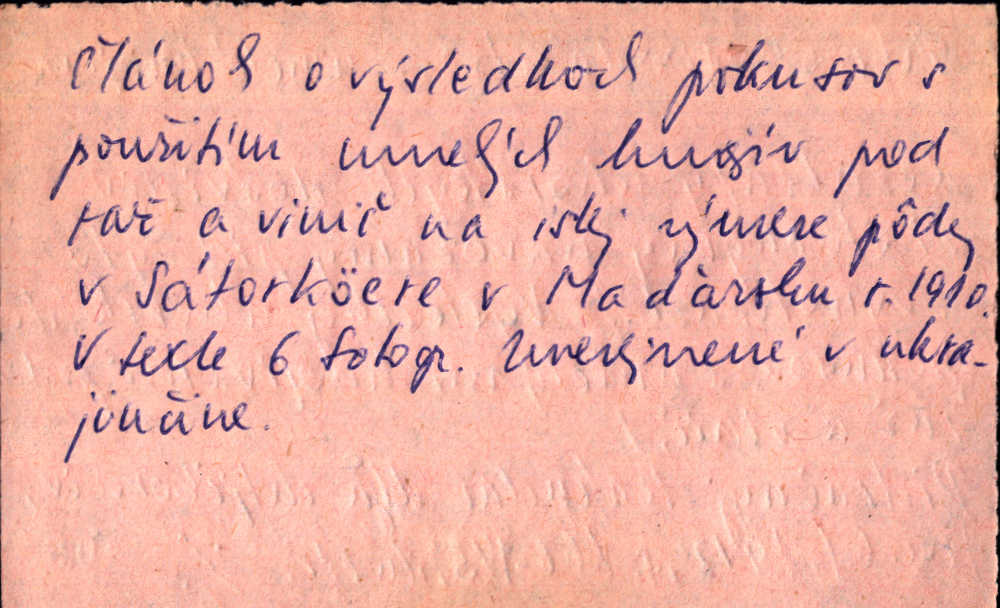 Článok o výsledkoch pokusov s
použitím umelých hnojív pod
raž a vinič na istej výmere pôdy
v Sátorköere v Maďarsku r. 1910.
V texte 6 fotogr. Uverejnené v ukra-
jinčine.